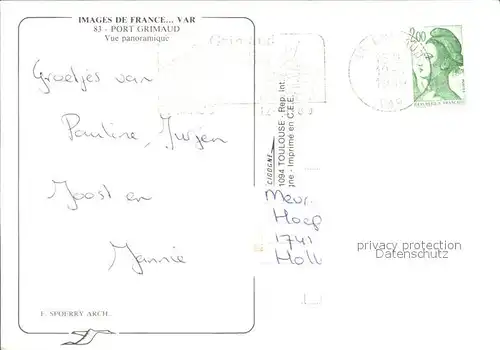 IMAGES DE FRANCE... VAR
83 - PORT GRIMAUD
Vue panoramique
Groetjes van
Pauline, Jurjen
Joost en
Mannie
F. SPOERRY ARCH.
CIGOGNE
1094 TOULOUSE - Rep. Int.
gne - Imprimé en C.E.E.
Grimaud
2,00
REPUBLIQUE FRANCAISE
Mevr.
Hoep
1741
Holl
privacy protection
Datenschutz